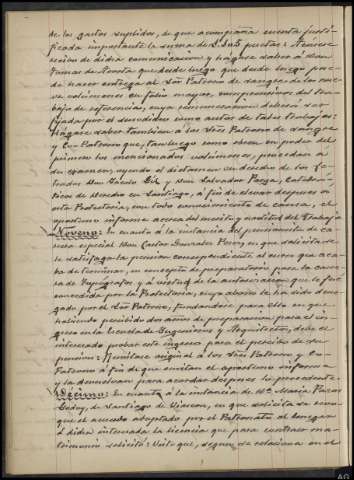 de los gastos suplidos, de que acompaña cuenta justi-
ficada importante la suma de pesetas: Acúsese
recibo de dicha comunicación y hágase saber á Don
Tomas de Acosta que desde luego puede
hacer entrega al Sor Patrono de sangre de los once
volúmenes en folio mayor, comprensivos del tra-
bajo de referencia, cuya remuneración deberá ser
fijada por el sucedáneo como autor de tales trabajos:
hágase saber tambien á los Sres Patrono de sangre
y Co-Patrono que, tan luego como obren en poder del
primero los mencionados volúmenes, procedan á
su examen, oyendo el dictamen de los Le-
trados Don Jacobo Gil y Don Salvador Parga, Catedrá-
ticos de Derecho en Santiago, á fin de elevar despues á
esta Protectoría, con todo conocimiento de causa, el
oportuno informe acerca del mérito y aptitud del trabajo.
Noveno: En cuanto á la instancia del pensionista de ca-
rrera especial Don Carlos Gonzalez Perez, en que solicita se
le satisfaga la pension correspondiente al curso que aca-
ba de terminar, en concepto de preparatorio para la carre-
ra de Topógrafos y á virtud de la autorizacion que le fué
concedida por la Protectoría, cuyo abono le ha sido dene-
gado por el Sor Patrono, fundándose para ello en que
habiendo perdido dos años de preparacion para el in-
greso en la Escuela de Ingenieros y Arquitectos, debe el
interesado probar este ingreso para el percibo de su
pension: Remítase original á los Sres Patrono y Co-
Patrono á fin de que emitan el oportuno informe
y la devuelvan para acordar despues lo procedente.
Decimo: En cuanto á la instancia de Dª Maria Pazos
Godoy, de Santiago de Viascon, en que solicita se revo-
que el acuerdo adoptado por el Patronato al denegar
á dicha interesada la licencia que para contraer ma-
trimonio solicitó: Visto que, segun se relaciona en el